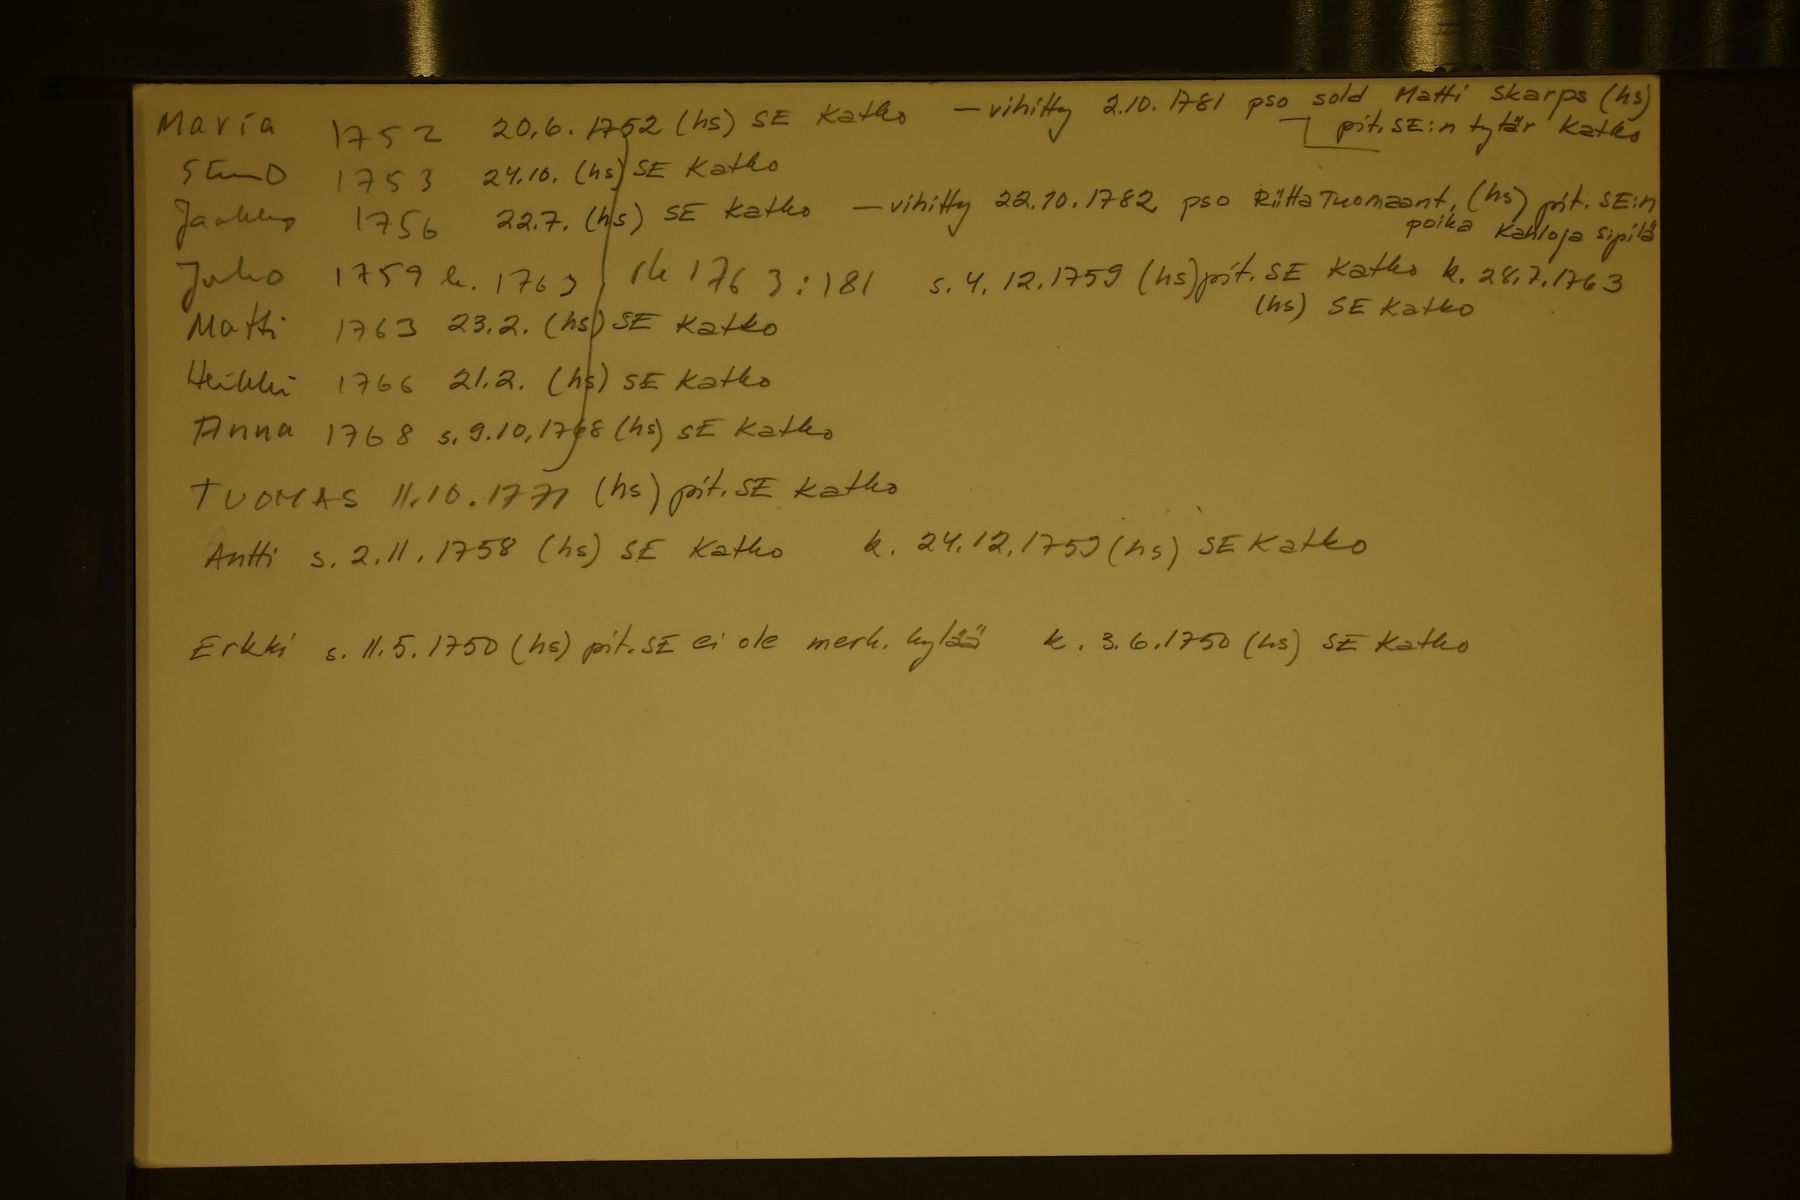 Maria 1752 20.6.1752 (hs) SE Katko — vihitty 2.10.1781 pso sold Matti Skarps (hs)
pit. SE:n tytär Katko
1753 24.10. (hs) SE Katko
Jaakko 1756 22.7. (hs) SE Katko — vihitty 22.10.1782 pso Riitta Tuomaant. (hs) pit. SE:n
poika Kahloja Sipilä
Juho 1759 k. 1763 rk 1763:181 s. 4.12.1759 (hs) pit. SE Katko k. 28.7.1763
(hs) SE Katko
Matti 1763 23.2. (hs) SE Katko
Heikki 1766 21.2. (hs) SE Katko
Anna 1768 s. 9.10.1768 (hs) SE Katko
TUOMAS 11.10.1771 (hs) pit. SE Katko
Antti s. 2.11.1758 (hs) SE Katko k. 24.12.1759 (hs) SE Katko
Erkki s. 11.5.1750 (hs) pit. SE ei ole merk. kylää k. 3.6.1750 (hs) SE Katko